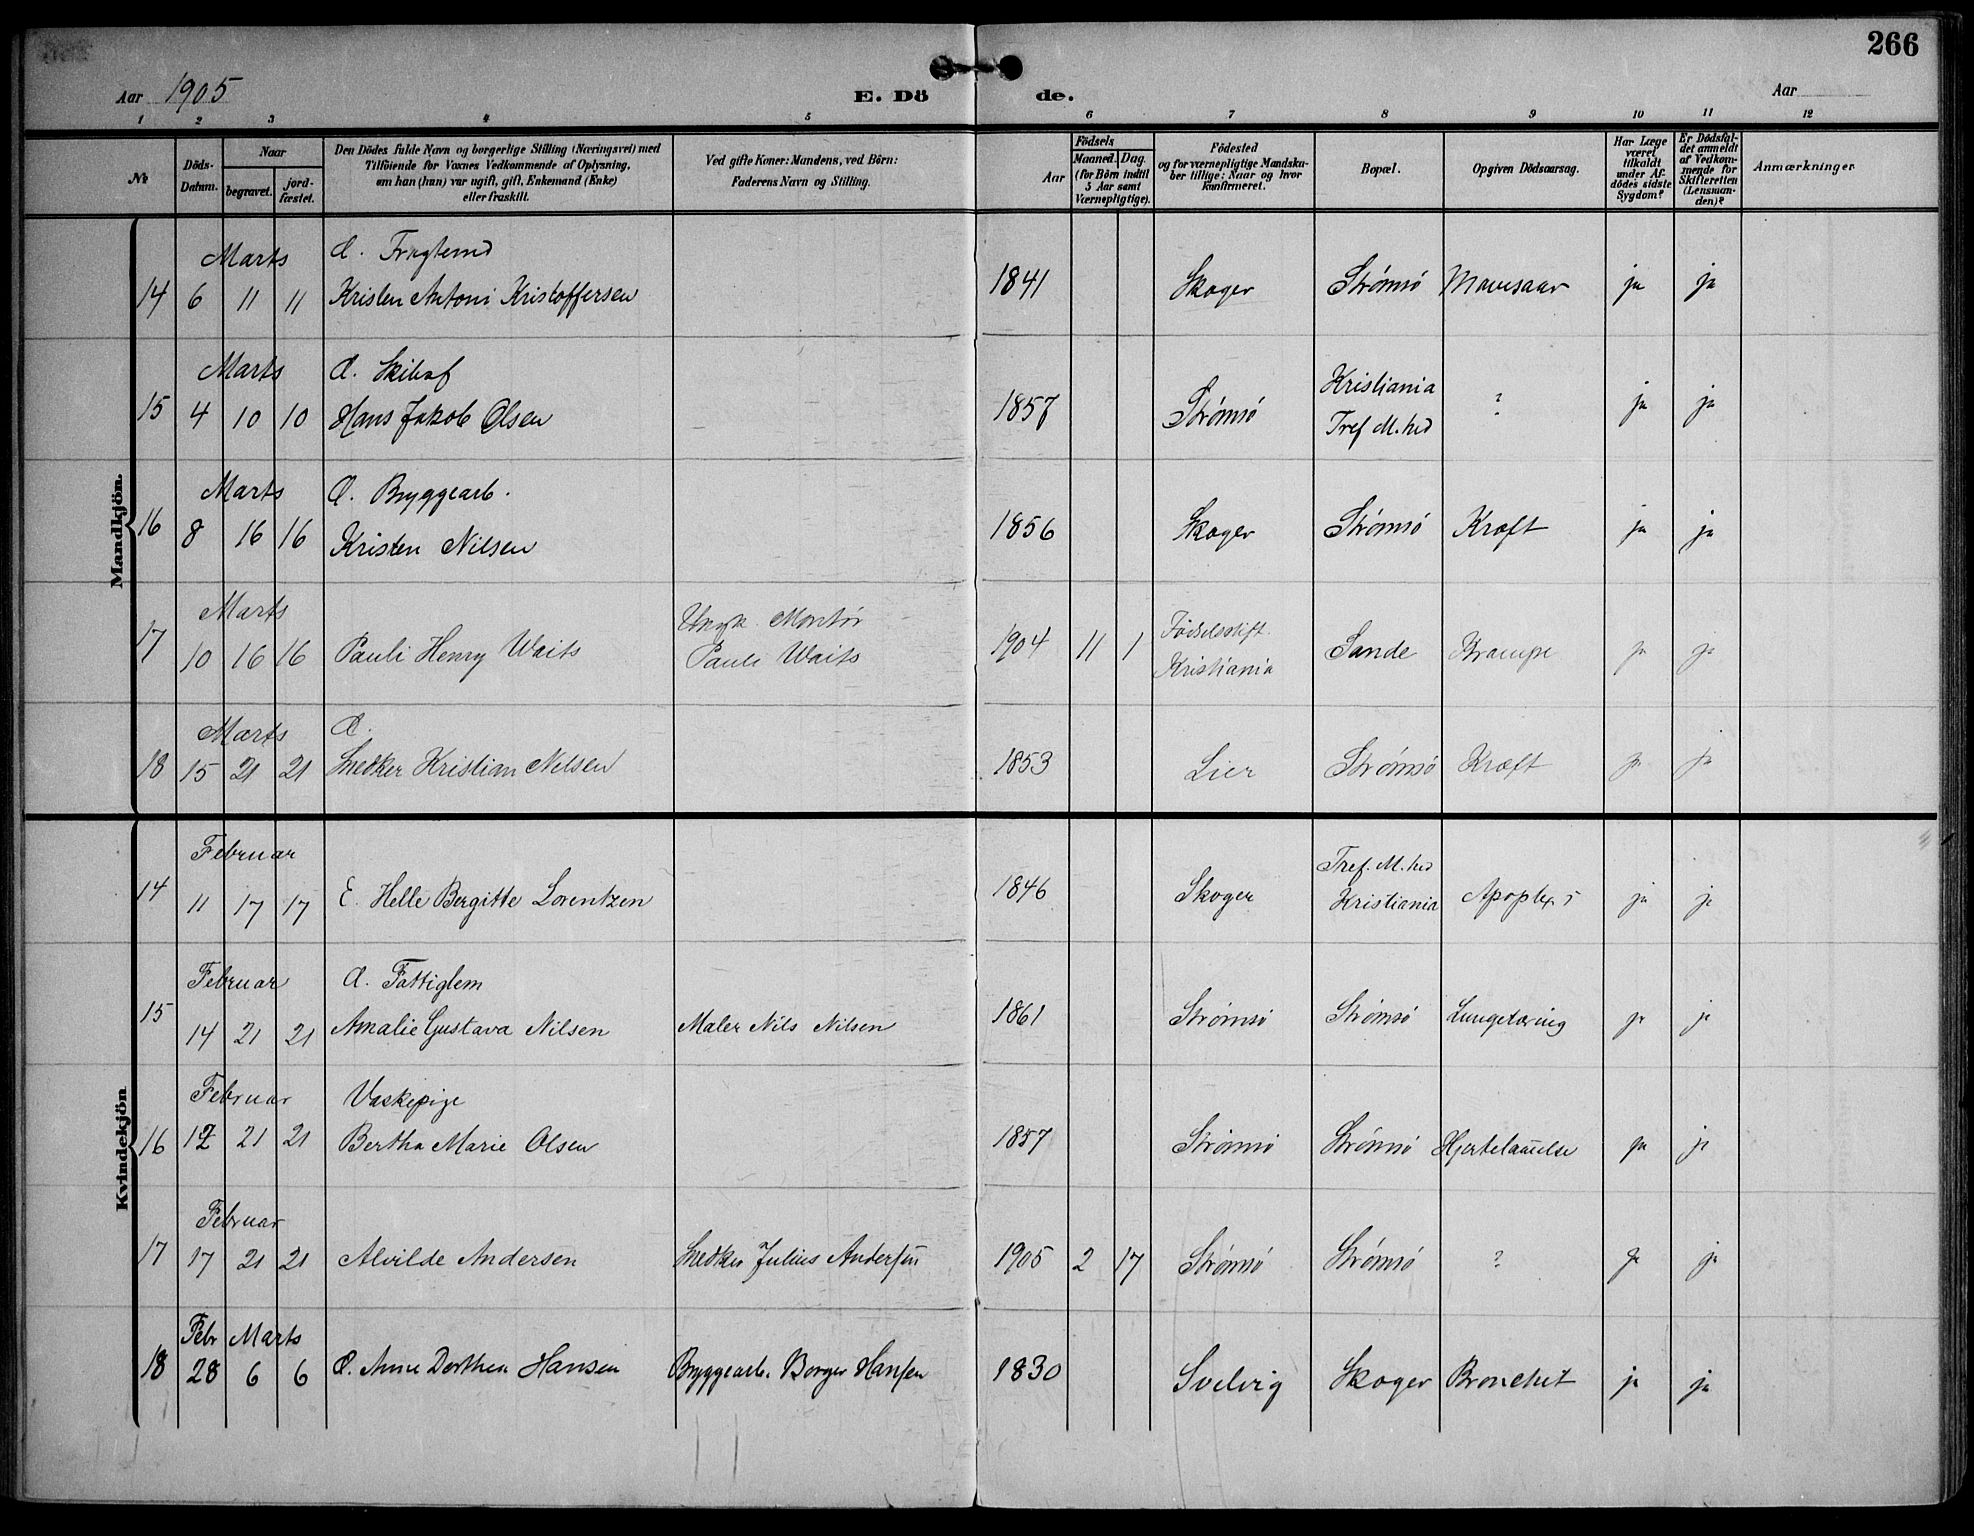 266
Aar 1905
E. Dö
de.
Aar
1 2 3 4 5 6 7 8 9 10 11 12
№
Döds-
Datum.
Naar
begravet.
jord-
fæstet.
Den Dödes fulde Navn og borgerlige Stilling (Næringsvei) med
Tilföiende for Voxnes Vedkommende af Oplysning,
om han (hun) var ugift, gift, Enkemand (Enke)
eller fraskilt.
Ved gifte Koner: Mandens, ved Börn:
Faderens Navn og Stilling.
Födsels
Aar
Maaned. Dag.
(for Börn indtil
5 Aar samt
Værnepligtige).
Födested
og for værnepligtige Mandska-
ber tillige: Naar og hvor
konfirmeret.
Bopæl.
Opgiven Dödsaarsag.
Har Læge
været
tilkaldt
under Af-
dödes sidste
Sygdom?
Er Dödsfal-
det anmeldt
af Vedkom-
mende for
Skifteretten
(Lensman-
den)?
Anmærkninger
Mandkjön.
Marts
14 6 11 11 Kristen Antoni Kristoffersen 1841 Skoger Strømsø Mavesaar ja ja
Marts
15 4 10 10 Hans Jakob Olsen 1857 Strømsø Kristiania
Tref M.hed ? ja ja
Marts Bryggearb.
16 8 16 16 Kristen Nilsen 1856 Skoger Strømsø Kræft ja ja
Marts Montør Fødselsstift.
17 10 16 16 Pauli Henry Waits Pauli Waits 1904 11 1 Kristiania Sande Krampe ja ja
Marts
18 15 21 21 Snedker Kristian Nilsen 1853 Lier Strømsø Kræft ja ja
Kvindekjön
Februar Tref. M.hed
14 11 17 17 E. Helle Bergitte Lorentzen 1846 Skoger Kristiania Apoplexi ja ja
Februar Fattiglem
15 14 21 21 Amalie Gustava Nilsen Maler Nils Nilsen 1861 Strømsø Strømsø Lungetæring ja ja
Februar Vaskepige
16 12 21 21 Bertha Marie Olsen 1857 Strømsø Strømsø Hjertelammelse ja ja
Februar
17 17 21 21 Alvilde Andersen Snedker Julius Andersen 1905 2 17 Strømsø Strømsø ? ja ja
Febr Marts
18 28 6 6 Anne Dorthea Hansen Bryggearb. Borger Hansen 1830 Svelvig Skoger Bronchit ja ja